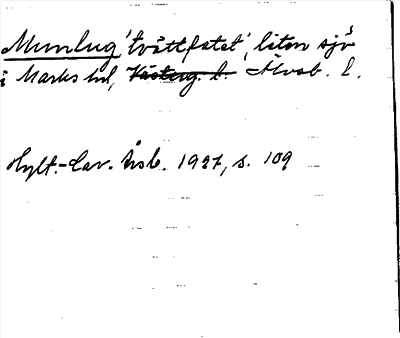 Munlug 'tvättfatet', liten sjö
i Marks hd, Västerg. l. Älvsb. l.
Hylt.-Cav. Årsb. 1927, s. 109